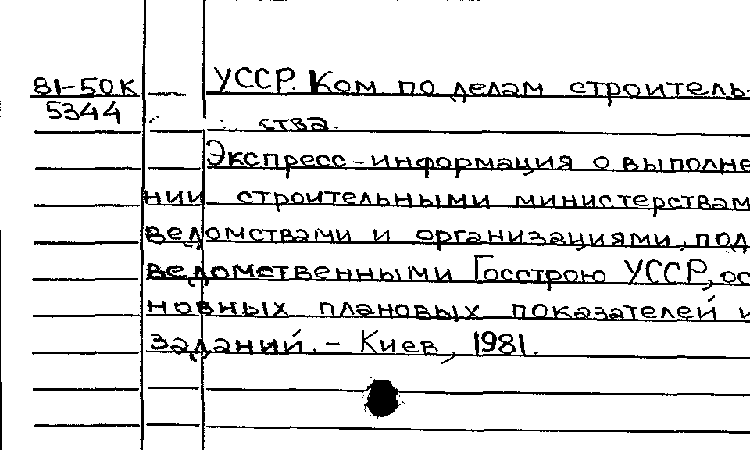 81-50К УССР. Ком по делам строитель-
5344 ства.
Экспресс-информация о выполне
нии строительными министерствам
ведомствами и организациями, под
ведомственными Госстрою УССР, ос
новных плановых показателей и
заданий. - Киев, 1981.